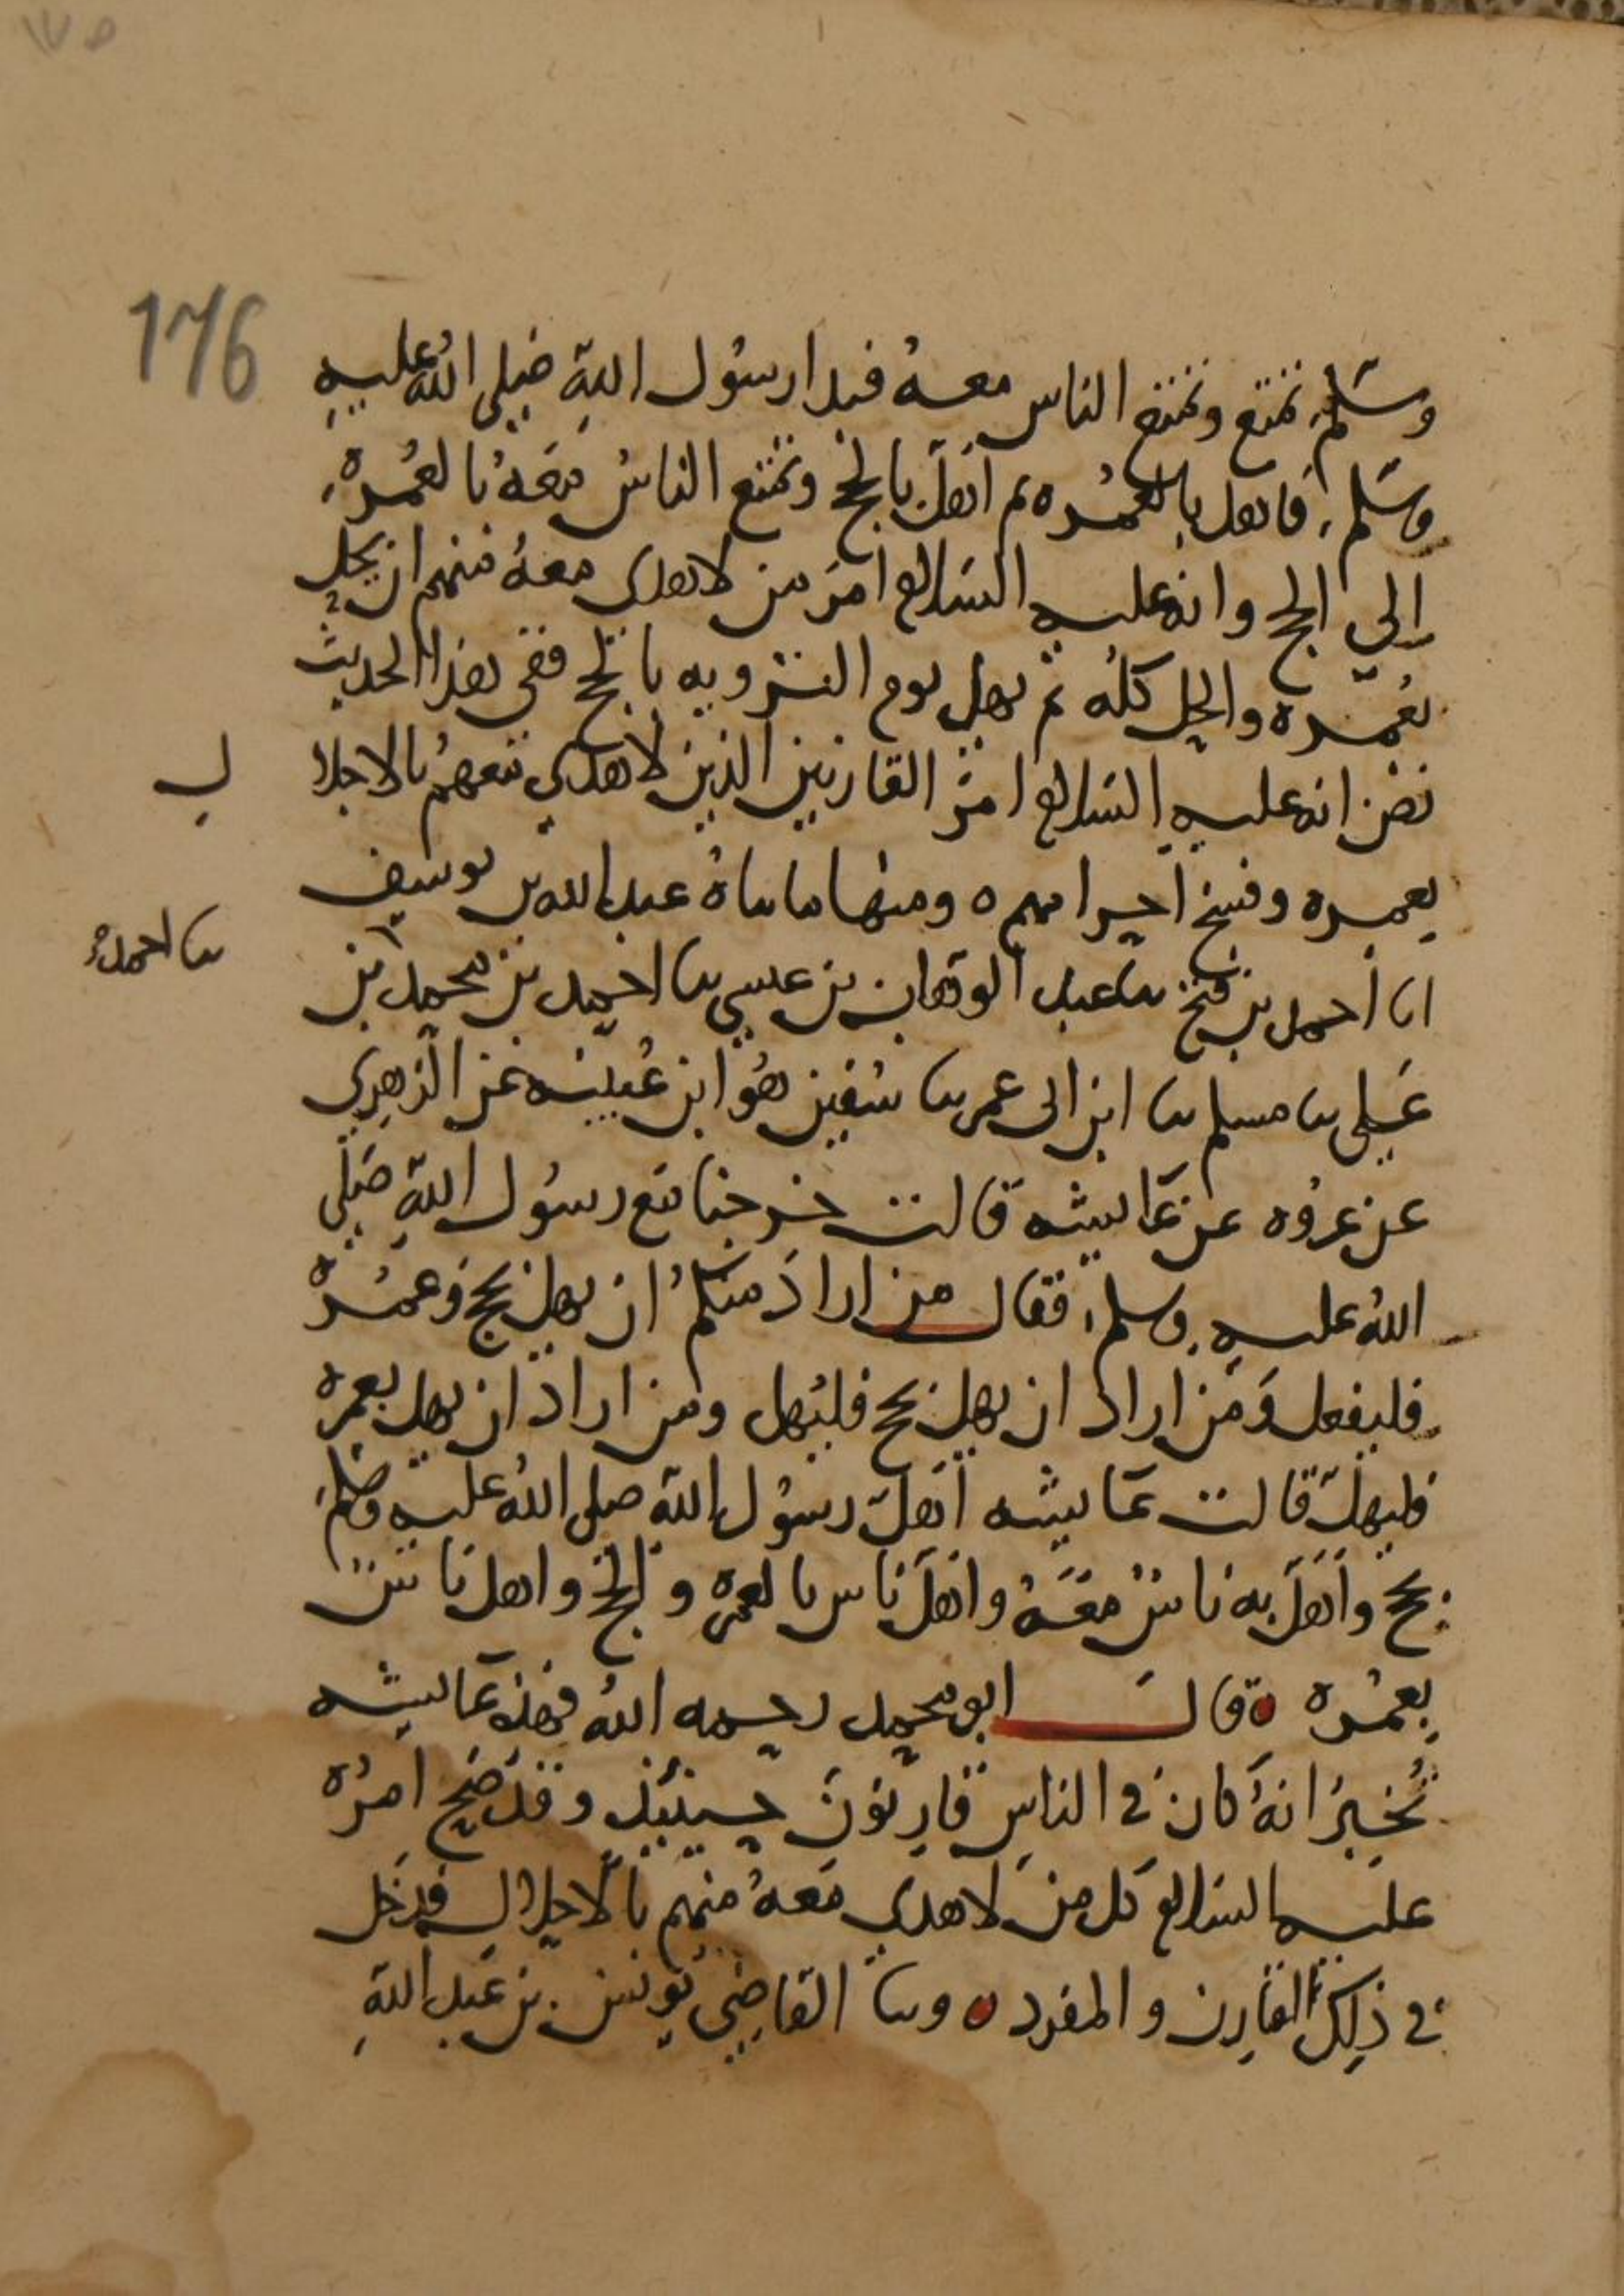 ١٧٥
176
وسلم تمتع وتمتع الناس معه فبدا رسول الله صلى الله عليه
وسلم فاهل بالعمره ثم اهل بالحج وتمتع الناس معه بالعمره
الى الحج وانه عليه السلام امر من لا هدى معه منهم ان يحل
بعمره والحل كله ثم يهل يوم الترويه بالحج ففي هذا الحديث
نص انه عليه السلام امر القارنين الذين لا هدي معهم بالاحلا
ل
بعمره وفسخ احرامهم ه ومنها ما ساه عبد الله بن يوسف
انا احمد بن فتح ثنا عبد الوهاب بن عيسى ثنا احمد بن محمد بن
ثنا احمد بن
علي ثنا مسلم ثنا ابن ابي عمر ثنا سفين هو ابن عيينه عن الزهري
عن عروه عن عايشه قالت خرجنا مع رسول الله صلى
الله عليه وسلم فقال من اراد منكم ان يهل بحج وعمره
فليفعل ومن اراد ان يهل بحج فليهل ومن اراد ان يهل بعمره
فليهل قالت عايشه اهل رسول الله صلى الله عليه وسلم
بحج واهل به ناس معه واهل ناس بالعمره والحج واهل ناس
بعمره ه قال ابو محمد رحمه الله فهذه عايشه
تخبر انه كان في الناس قارنون حينيذ وقد صح امره
عليه السلام كل من لا هدي معه منهم بالاحلال فدخل
في ذلك القارن والمفرد ه وثنا القاضي يونس بن عبد الله